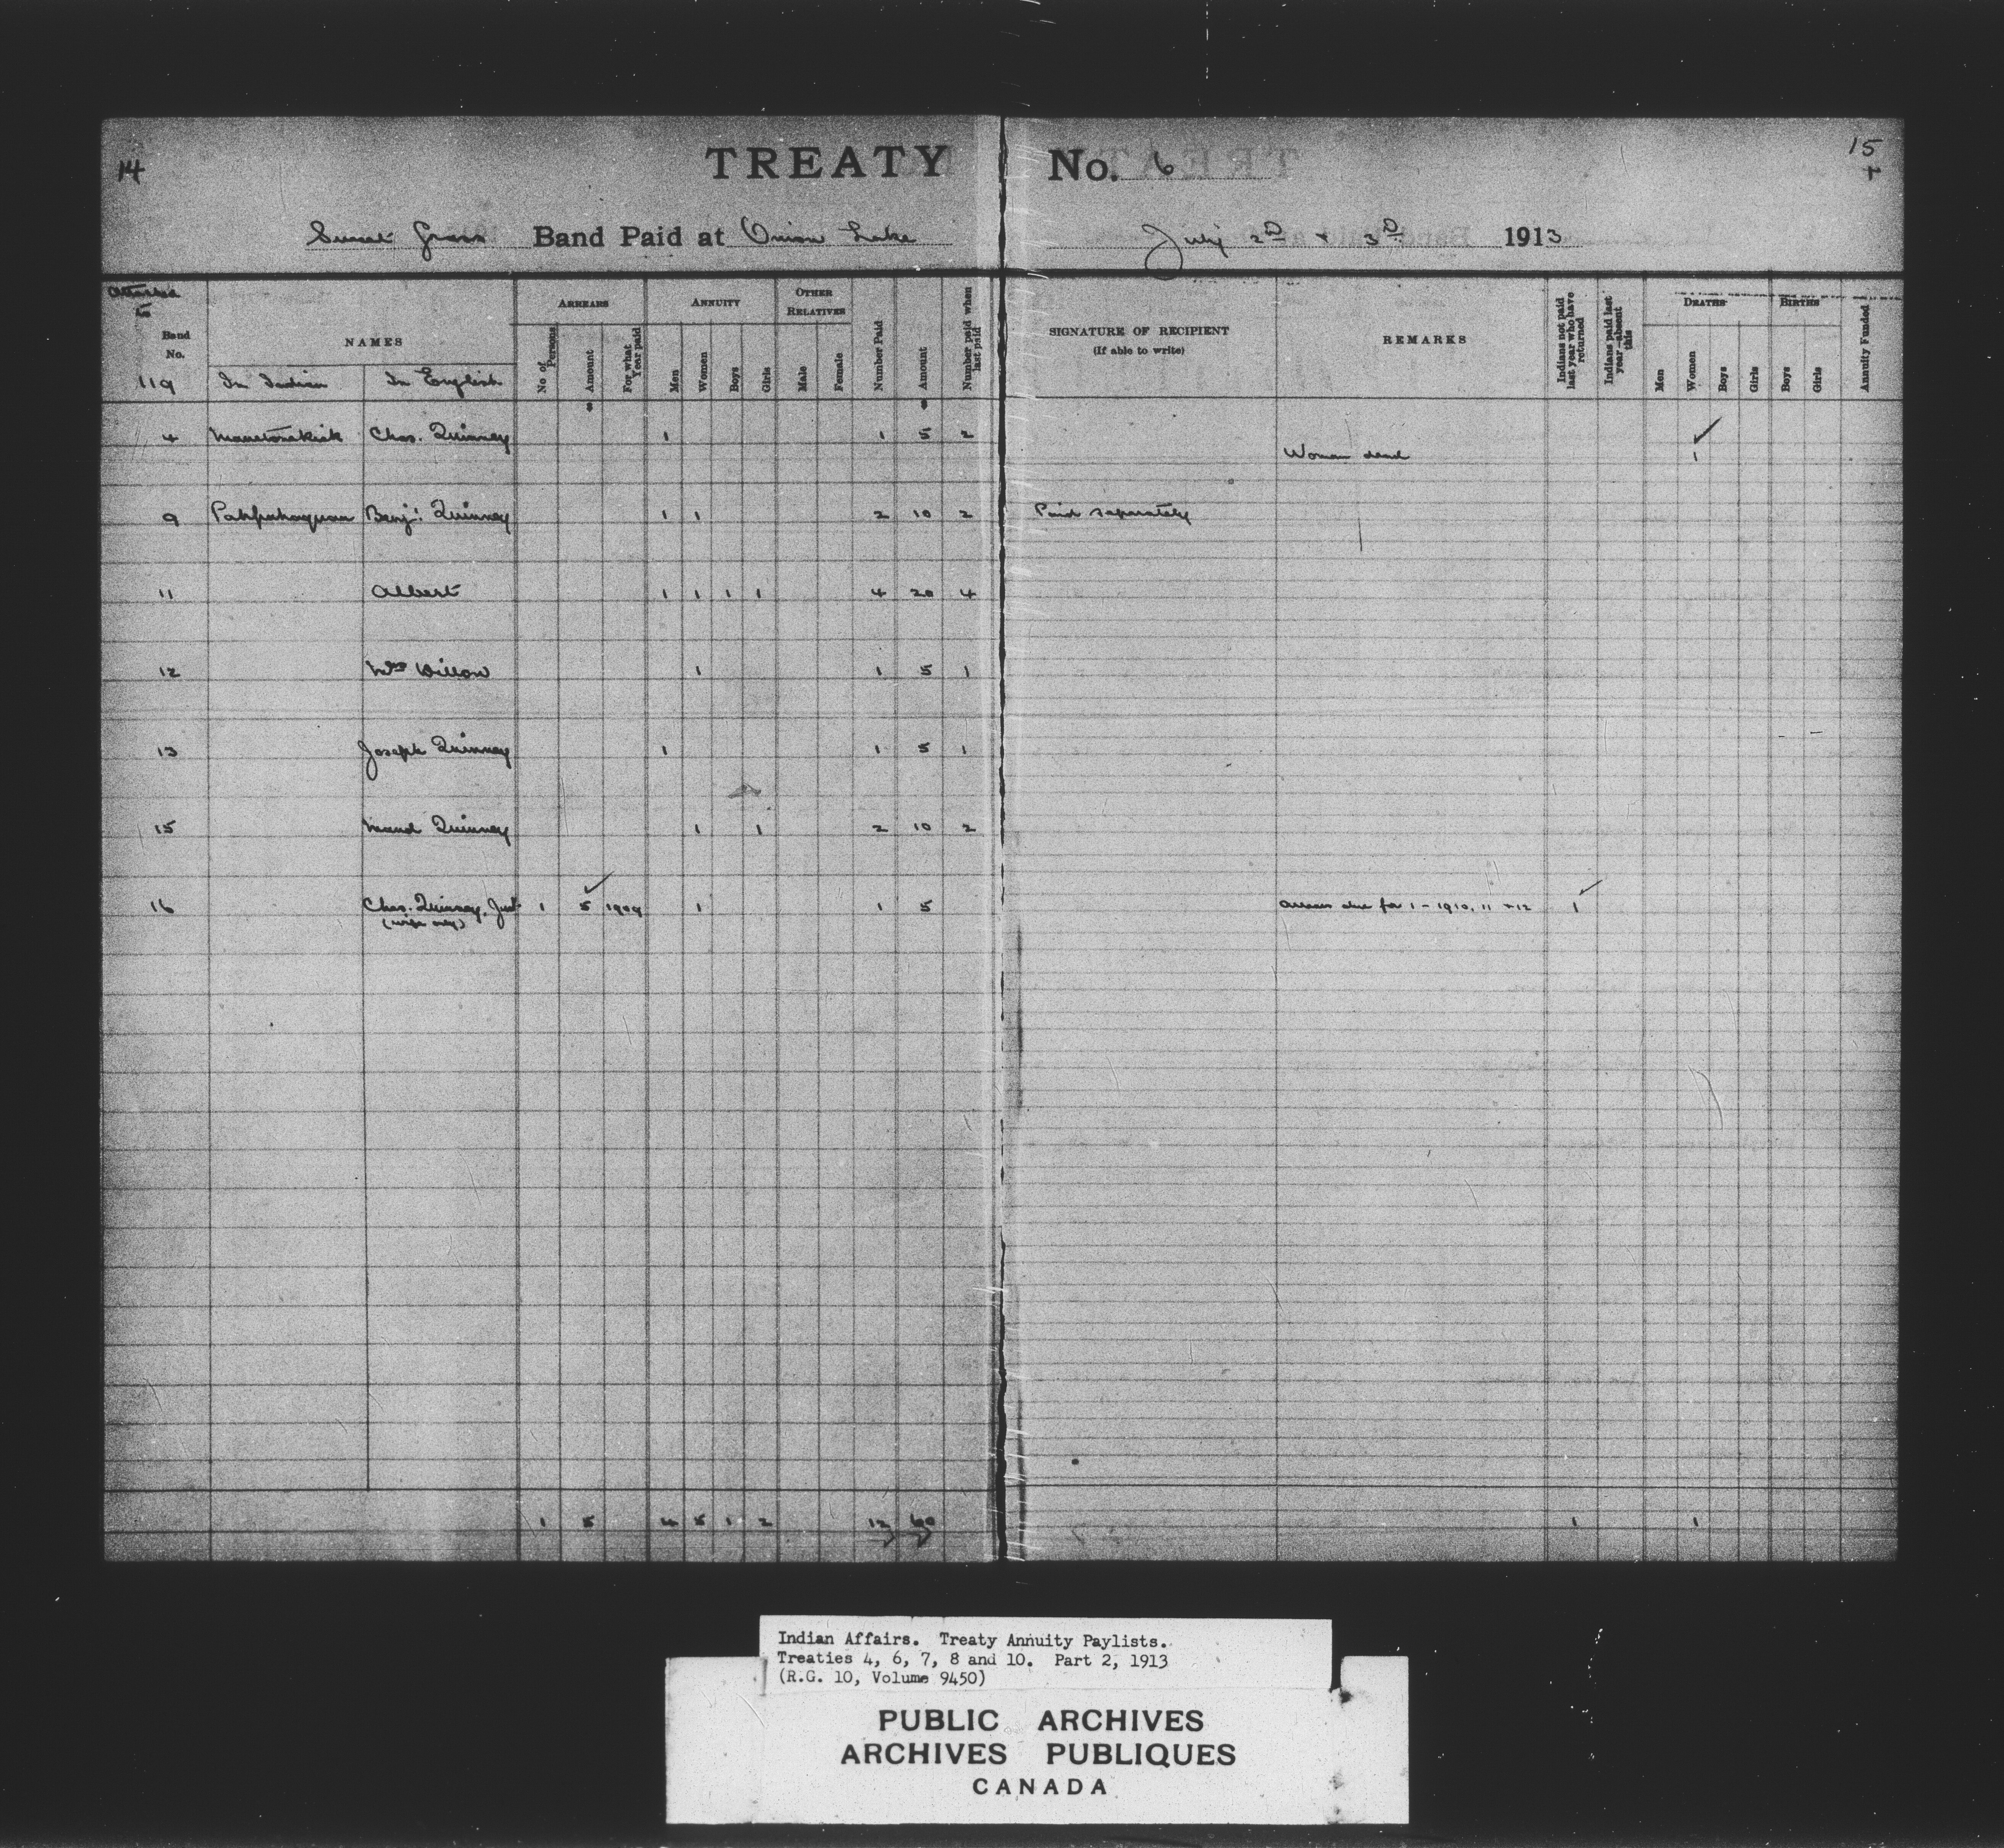 14
TREATY No. 6
15
Sweet Grass Band Paid at Onion Lake July 2D & 3D 1913
Attached to
Band No.
NAMES
ARREARS
ANNUITY
OTHER RELATIVES
No of Persons
Amount
For what Year paid
Men
Women
Boys
Girls
Male
Female
Number Paid
Amount
Number paid when last paid
SIGNATURE OF RECIPIENT
(If able to write)
REMARKS
Indians not paid last year who have returned
Indians paid last year—absent this
DEATHS
BIRTHS
Men
Women
Boys
Girls
Boys
Girls
Annuity Funded
119 In Indian In English
4 Chas. Quinney 1 1 5 2
Woman dead 1
9 Benj. Quinney 1 1 2 10 2 Paid separately
11 Albert 1 1 1 1 4 20 4
12 Mrs Willow 1 1 5 1
13 Joseph Quinney 1 1 5 1
15 Maud Quinney 1 1 2 10 2
16 Chas. Quinney, Junr 1 5 1909 1 1 5 Arrears due for 1 - 1910, 11 + 12 1
(wife only)
1 5 4 5 1 2 12 60 1 1
Indian Affairs. Treaty Annuity Paylists.
Treaties 4, 6, 7, 8 and 10. Part 2, 1913
(R.G. 10, Volume 9450)
PUBLIC ARCHIVES
ARCHIVES PUBLIQUES
CANADA